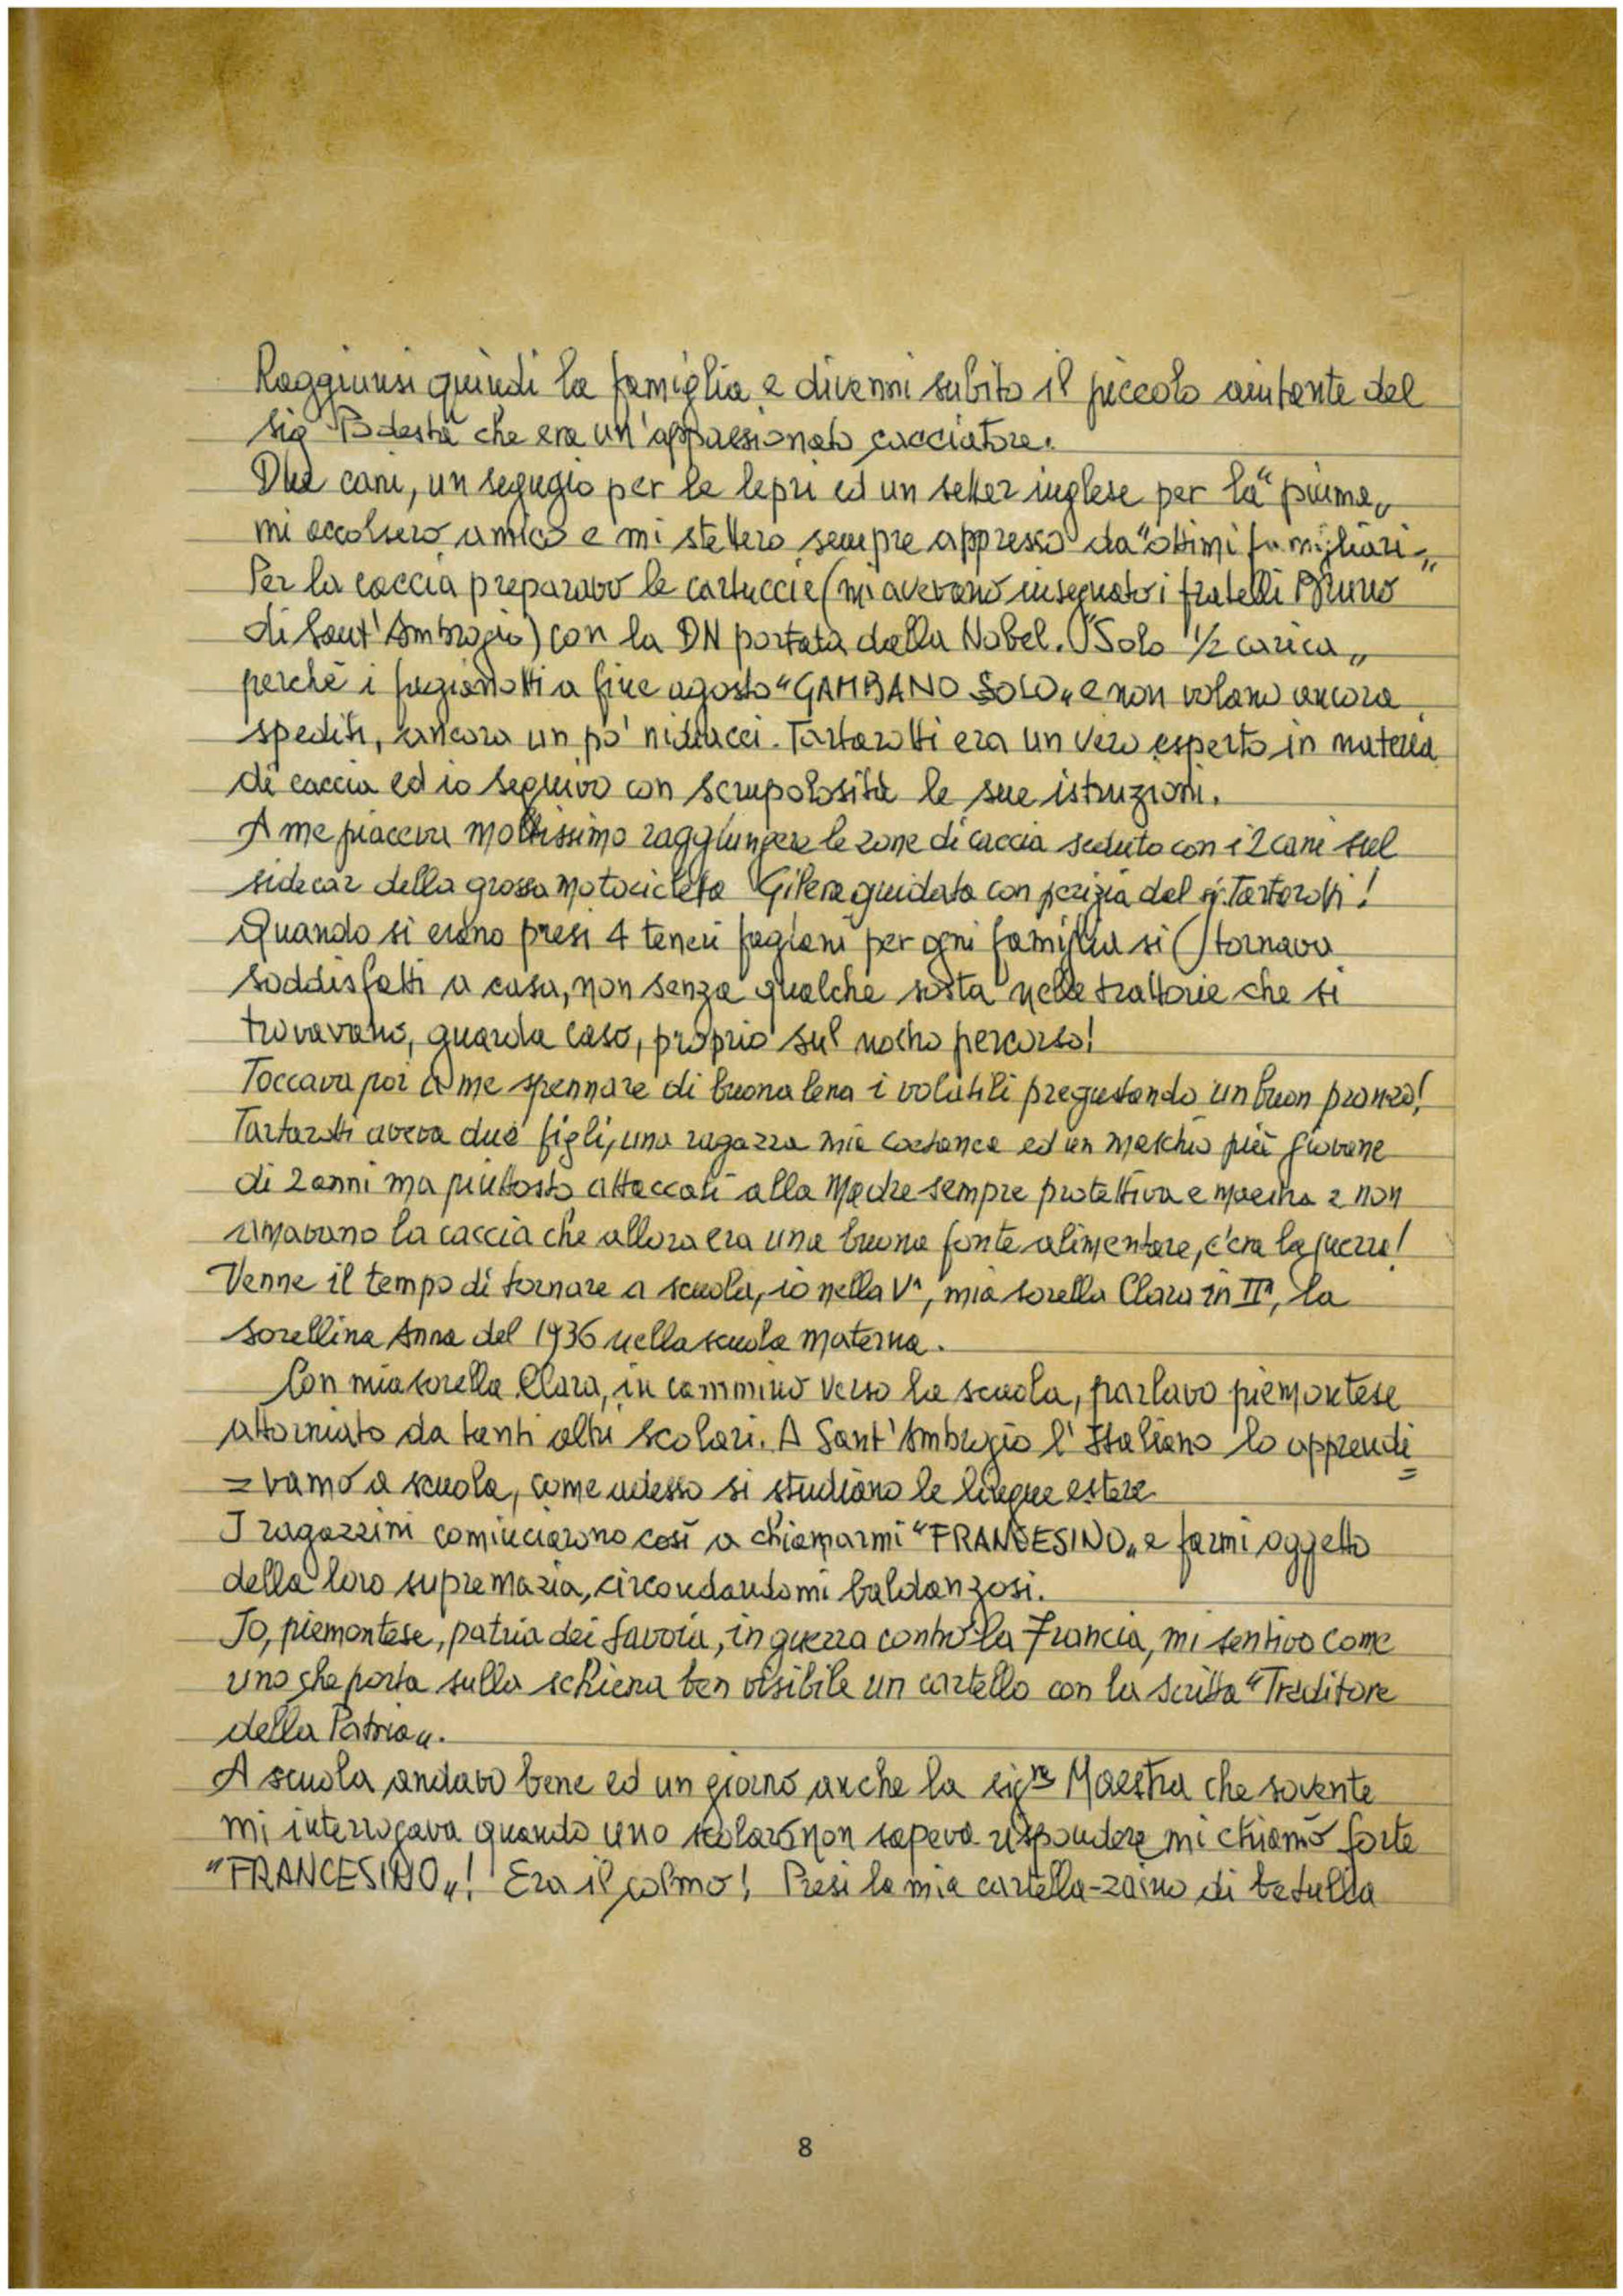 Raggiunsi quindi la famiglia e divenni subito il piccolo aiutante del
sig Podestà che era un'appassionato cacciatore.
Due cani, un segugio per le lepri ed un setter inglese per la "piuma„
mi accolsero amico e mi stettero sempre appresso da "ottimi famigliari„
Per la caccia preparavo le cartuccie (mi avevano insegnato i fratelli Bruno
di Sant'Ambrogio) con la DN portata dalla Nobel. "Solo 1/2 carica„
perchè i fagianotti a fine agosto "GAMBANO SOLO„ e non volano ancora
spediti, ancora un pò nidiacci. Tartarotti era un vero esperto in materia
di caccia ed io seguivo con scrupolosità le sue istruzioni.
A me piaceva moltissimo raggiungere le zone di caccia seduto con i 2 cani sul
sidecar della grossa motocicletta Gilera guidata con perizia dal sig. Tartarotti!
Quando si erano presi 4 teneri fagiani per ogni famiglia si () tornava
soddisfatti a casa, non senza qualche sosta nelle trattorie che si
trovavano, guarda caso, proprio sul nostro percorso!
Toccava poi a me spennare di buona lena i volatili pregustando un buon pranzo!
Tartarotti aveva due figli, una ragazza mia coetanea ed un maschio più giovane
di 2 anni ma piuttosto attaccati alla Madre sempre protettiva e maestra e non
amavano la caccia che allora era una buona fonte alimentare, c'era la guerra!
Venne il tempo di tornare a scuola, io nella Vª, mia sorella Clara in IIª, la
sorellina Anna del 1936 nella scuola materna.
Con mia sorella Clara, in cammino verso la scuola, parlavo piemontese
attorniato da tanti altri scolari. A Sant'Ambrogio l'Italiano lo apprendi
=vamo a scuola, come adesso si studiano le lingue estere.
I ragazzini cominciarono così a chiamarmi "FRANCESINO„ e farmi oggetto
della loro supremazia, circondandomi baldanzosi.
Io, piemontese, patria dei Savoia, in guerra contro la Francia, mi sentivo come
uno che porta sulla schiena ben visibile un cartello con la scritta "Traditore
della Patria„.
A scuola andavo bene ed un giorno anche la sigra Maestra che sovente
mi interrogava quando uno scolaro non sapeva rispondere mi chiamò forte
"FRANCESINO„! Era il colmo! Presi la mia cartella-zaino di betulla
8